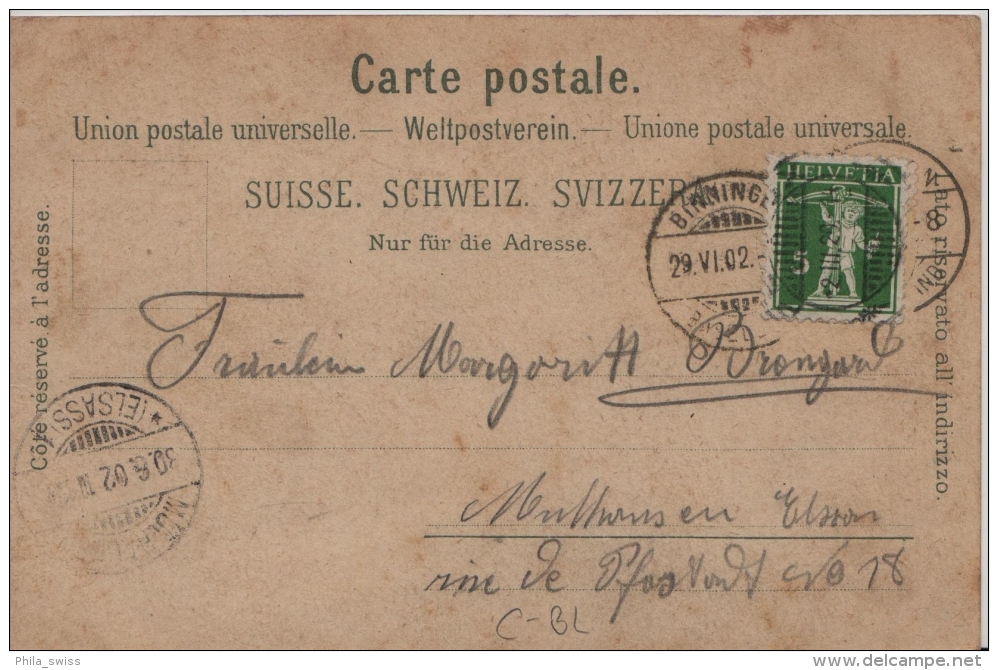 Carte postale.
Union postale universelle. — Weltpostverein. — Unione postale universale.
SUISSE. SCHWEIZ. SVIZZERA
Nur für die Adresse.
Côté réservé à l'adresse.
Lato riservato all'indirizzo.
HELVETIA
5
BINNINGEN
29.VI.02.-8
Fräulein Margoritt
(ELSASS)
30.6.02
Mulhausen Elsass
rue de Pfastadt No 18
C-BL
Phila_swiss
www.delcampe.net